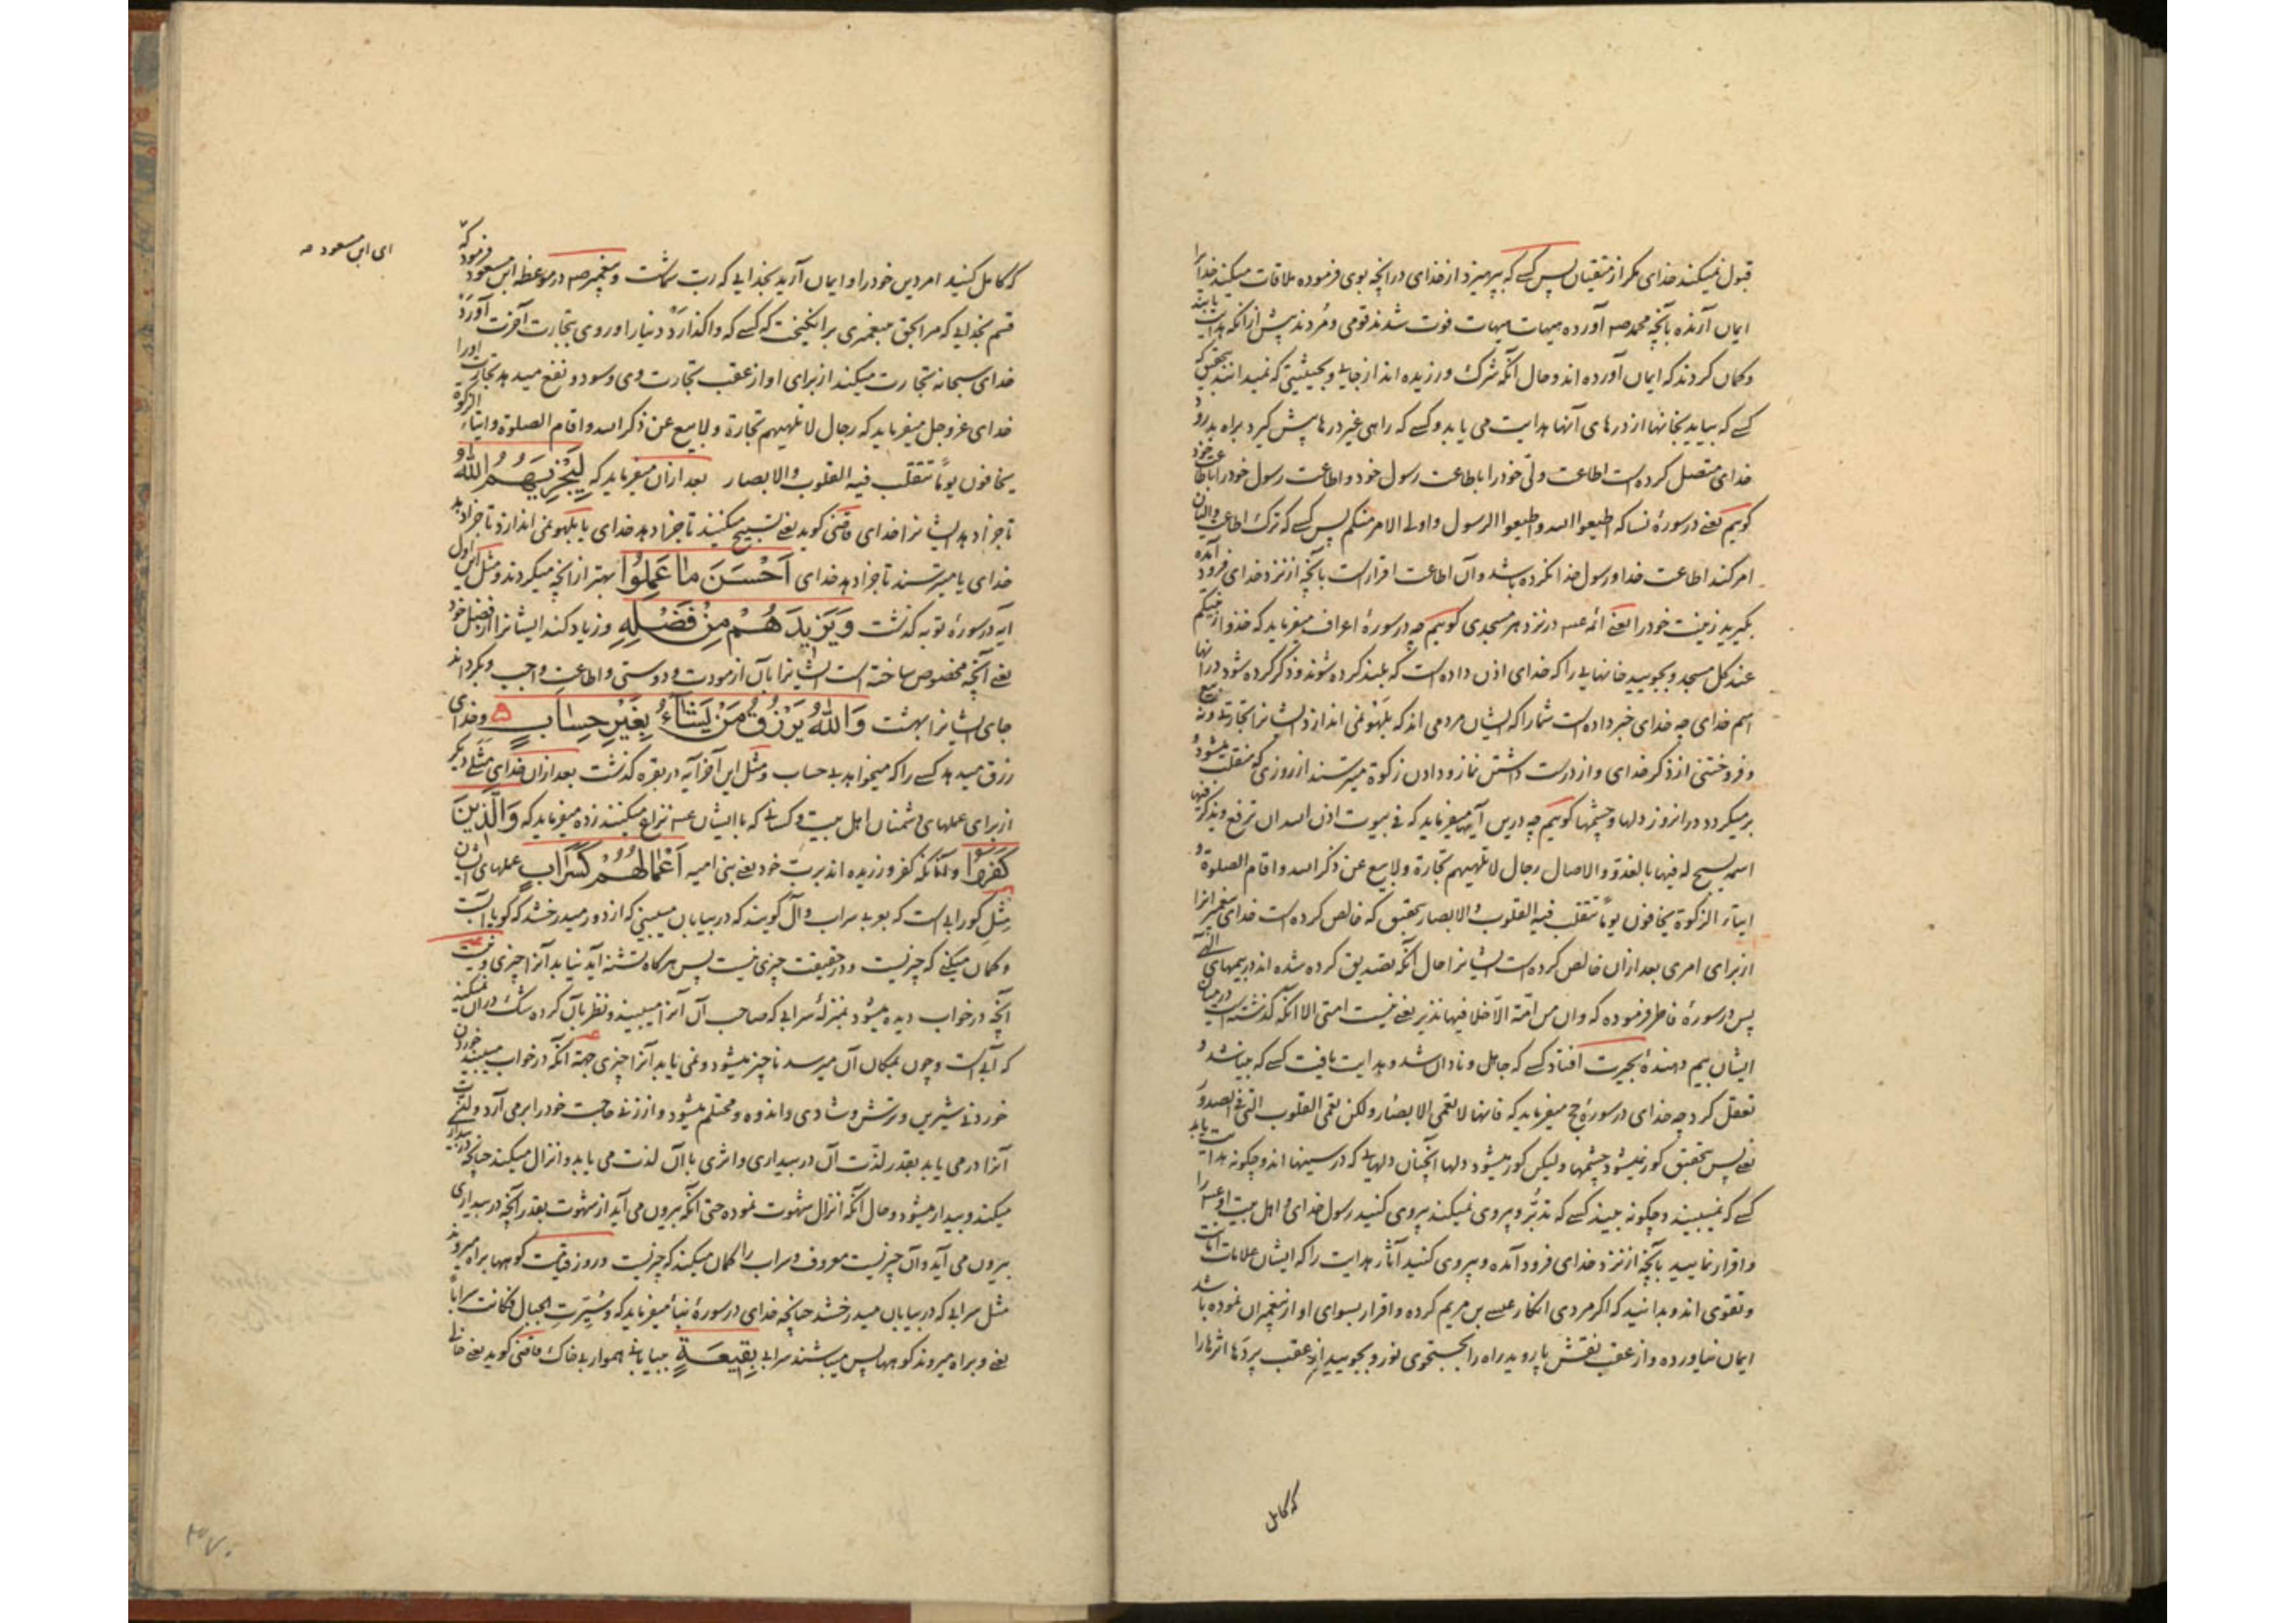 قبول نمیکند خدای مکر از متقیان پس کسی که بپرهیزد از خدای در انچه بوی فرموده ملاقات میکند خدا را
ایمان آرنده بآنچه محمد صه آورده هیهات هیهات فوت شدند قومی و مردند پیش از انکه هدایت یابند
و کمان کردند که ایمان آورده اند و حال آنکه شرک ورزیده اند از جایی و بحیثیتی که نمیدانند بتحقیق که
کسی که بیاید بخانها از درهای آنها هدایت می یابد و کسی که راهی غیر درها پیش کیرد براه بد رود و
خدای متصل کرده است اطاعت ولی خود را باطاعت رسول خود و اطاعت رسول خود را باطاعت خود
کویم یعنی در سورۀ نسا که اطیعوا الله و اطیعوا الرسول و اولی الامر منکم پس کسی که ترک اطاعت والیان
امر کند اطاعت خدا و رسول خدا نکرده باشد و آن اطاعت اقرار است بآنچه از نزد خدای فرود آمده
بکیرید زینت خود را یعنی ائمه عسه در نزد هر مسجدی کویم چه در سورۀ اعراف میفرماید که خذوا زینتکم
عند کل مسجد و بجویید خانهایی را که خدای اذن داده است که بلند کرده شوند و ذکر کرده شود در آنها
اسم خدای چه خدای خبر داده است شما را که ایشان مردمی اند که بلهو نمی اندازد ایشانرا تجارتی و نه بیع
و فروختنی از ذکر خدای و از درست داشتن نماز و دادن زکوة میترسند از روزی که منقلب میشود و
برمیکردد در انروز دلها و چشمها کویم چه درین آیها میفرماید که فی بیوت اذن الله ان ترفع و یذکر فیها
اسمه یسبح له فیها بالغدو و الاصال رجال لا تلهیهم تجارة ولا بیع عن ذکر الله و اقام الصلوة و
ایتاء الزکوة یخافون یوماً تتقلب فیه القلوب و الابصار بتحقیق که خالص کرده است خدای پیغمبرانرا
از برای امری بعد ازان خالص کرده است ایشانرا حال آنکه تصدیق کرده شده اند در بیمهای الهی
پس در سورۀ فاطر فرموده که و ان من امّة الّا خلا فیها نذیر یعنی نیست امتی الا انکه کذشته است در میان
ایشان بیم دهندۀ بحیرت افتاد کسی که جاهل و نادان شد و هدایت یافت کسی که بینا شد و
تعقل کرد چه خدای در سورۀ حج میفرماید که فانها لا تعمی الابصار و لکن تعمی القلوب التی فی الصدور
یعنی پس بتحقیق کور نمیشود چشمها و لیکن کور میشود دلها آنچنان دلهایی که در سینها اند و چکونه هدایت یابد
کسی که نمیبیند و چکونه بیند کسی که تدبّر و پیروی نمیکند پیروی کنید رسول خدای و اهل بیت او عسه را
و اقرار نمایید بآنچه از نزد خدای فرود آمده و پیروی کنید آثار هدایت را که ایشان علامات امانت
و تقوی اند و بدانید که اکر مردی انکار عیسی بن مریم کرده و اقرار بسوای او از پیغمبران نموده باشد
ایمان نیاورده و از عقب نقش پا روید راه را بجستجوی نور و بجویید از عقب پردها اثرها را
که کامل
که کامل کنید امر دین خود را و ایمان آرید بخدایی که رب شماست و پیغمبر صه در موعظه ابن مسعود فرموده که
ای ابن مسعود صه
قسم بخدایی که مرا بحق پیغمبری برانکیخت که کسی که واکذارد دنیا را و روی بتجارت آخرت آورد
خدای سبحانه تجارت میکند از برای او از عقب تجارت وی و سود و نفع میدهد تجارت او را
خدای عز و جل میفرماید که رجال لا تلهیهم تجارة ولا بیع عن ذکر الله و اقام الصلوة و ایتاء الزکوة
یخافون یوماً تتقلب فیه القلوب و الابصار بعد ازان میفرماید که لِیَجْزِیَهُمُ اللّٰهُ
تا جزا دهد ایشانرا خدای قاضی کوید یعنی تسبیح میکنند تا جزا دهد خدای یا بلهو نمی اندازد تا جزا دهد
خدای یا میترسند تا جزا دهد خدای اَحْسَنَ مٰا عَمِلُوا بهتر ازانچه میکردند و مثل این اول
آیه در سورۀ توبه کذشت وَیَزِیدَهُمْ مِنْ فَضْلِهِ و زیاد کند ایشانرا از فضل خود
یعنی آنچه مخصوص ساخته است ایشانرا بآن از مودت و دوستی و اطاعت واجب و بکرداند
جای ایشانرا بهشت وَاللّٰهُ یَرْزُقُ مَنْ یَشٰاءُ بِغَیْرِ حِسٰابٍ و خدای
رزق میدهد کسی را که میخواهد بی حساب و مثل این آخر آیه در بقره کذشت بعد ازان خدای مثلی دیکر
از برای عملهای دشمنان اهل بیت و کسانی که با ایشان عسه نزاع میکنند زده میفرماید که وَالَّذِینَ
کَفَرُوا و آنانکه کفر ورزیده اند برب خود یعنی بنی امیه اَعْمٰالُهُمْ کَسَرٰابٍ عملهای ایشان
مثل کورابی است که بعربی سراب و آل کویند که در بیابان میبینی که از دور میدرخشد که کویا آبست
و کمان میکنی که چیزیست و در حقیقت چیزی نیست پس هرکاه تشنه آید نیابد آنرا چیزی و نیست
آنچه در خواب دیده میشود بمنزلۀ سرابی که صاحب آن آنرا میبیند و نظر بآن کرده شک در آن نمیکند
که آبی است و چون بمکان آن میرسد ناچیز میشود و نمی یابد آنرا چیزی همچه آنکه در خواب میبیند خوردن
خوردنی شیرین و ترش و شادی و اندوه و محتلم میشود و از زنی حاجت خود را برمی آرد و لذت
آنرا درمی یابد بقدر لذت آن در بیداری و اثری با آن لذت می یابد و انزال میکند چنانچه در بیداری
میکند و بیدار میشود و حال آنکه انزال شهوت نموده حتی آنکه بیرون می آید از شهوت بقدر آنچه در بیداری
بیرون می آید و آن چیزیست معروف و سراب را کمان میکند که چیزیست و در روز قیامت کوهها براه میروند
مثل سرابی که در بیابان میدرخشد چنانچه خدای در سورۀ نبأ میفرماید که وَ سُیِّرَتِ الجبال فکانت سراباً
یعنی و براه میروند کوهها پس میباشند سرابی بِقِیعَةٍ ببیابانی هموار بی خاک قاضی کوید یعنی